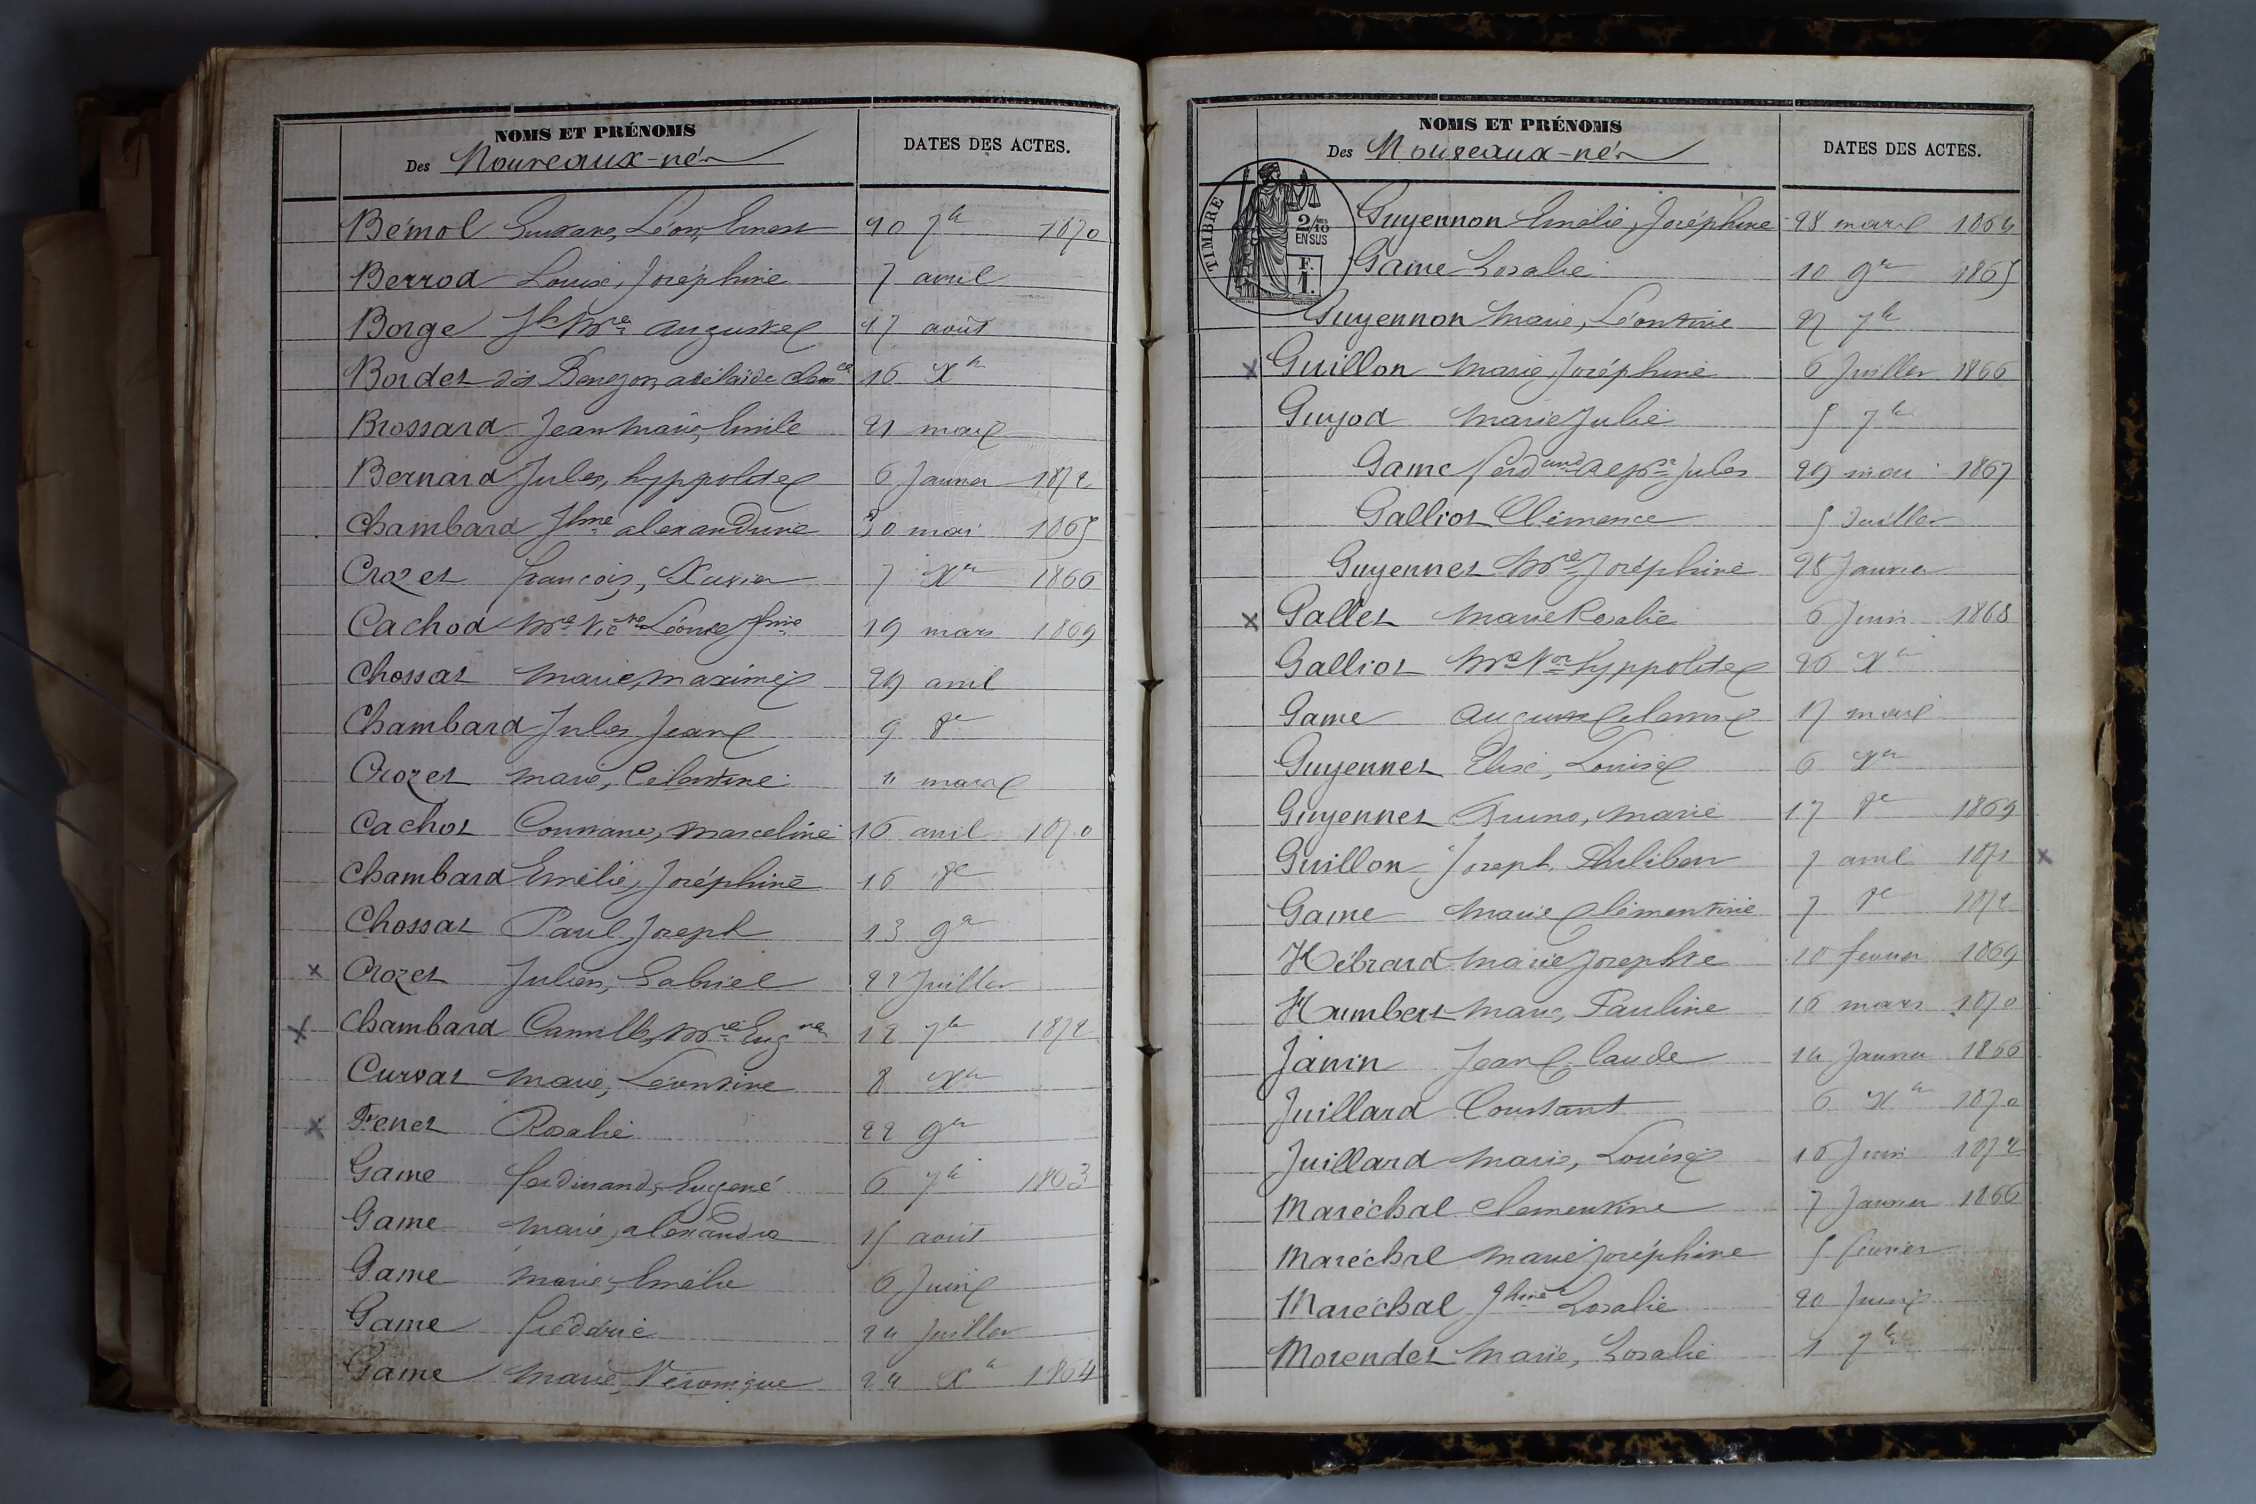 NOMS ET PRÉNOMS
Des Nouveaux-nés
DATES DES ACTES.
Bémol Gustave, Léon, Ernest 20 7bre 1870
Berrod Louise, Joséphine 7 avril
Borge Jh Mie Auguste 17 août
Bordet dit Benezon, adélaïde Clemce 16 Xbre
Brossard Jean Marie, Emile 21 mars
Bernard Jules, hyppolite 6 Janvier 1872
Chambard Jhine alexandrine 30 mai 1865
Crozet françois, Xavier 7 Xbre 1866
Cachod Mie Vicre Léonie Jhine 19 mars 1869
Chossat Marie, Maxime 29 avril
Chambard Jules Jean 9 8e
Crozet Marie, Célestine 11 mars
Cachot Constance, Marceline 16 avril 1870
Chambard Emélie, Joséphine 16 8e
Chossat Paul, Joseph 13 9re
x Crozet Julien, Gabriel 22 Juillet
x Chambard Camille, Mie Eugnie 12 7bre 1872
Curvat Marie, Léontine 8 Xbre
x Fenet Rosalie 22 9re
Game ferdinand, Eugené 6 7bre 1863
Game Marie, alexandre 15 août
Game Marie, Emélie 6 Juin
Game frédéric 24 Juillet
Game Marie, Véronique 24 Xbre 1864
NOMS ET PRÉNOMS
Des Nouveaux-nés
DATES DES ACTES.
TIMBRE
2/10
EN SUS
F.
1.
Guyennon Emélie, Joséphine 28 mars 1864
Game Rosalie 10 9re 1865
Guyennon Marie, Léontine 27 7bre
x Guillon Marie, Joséphine 6 Juillet 1866
Guyod Marie Julie 5 7bre
Game Jules 29 mai 1867
Galliot Clémence 5 Juillet
Guyennet Mie Joséphine 28 Janvier
x Gallet Marie Rosalie 6 Juin 1868
Galliot hyppolite 26 Xbre
Game Auguste 17 mars
Guyennet Elise, Louise 6 Xbre
Guyennet Bruno, Marie 17 8e 1869
Guillon Joseph, Philibert 7 avril 1871 x
Game Marie Clémentine 7 8e 1872
Hébrard Marie Josephte 10 fevrier 1869
Humbert Marie, Pauline 16 mars 1870
Janin Jean Claude 14 Janvier 1866
Juillard Constant 6 Xbre 1870
Juillard Marie, Louise 16 Juin 1872
Maréchal Clementine 7 Janvier 1866
Maréchal Marie Joséphine 5 fevrier
Maréchal Jhine Rosalie 20 Juin
Morendet Marie, Rosalie 1 7bre